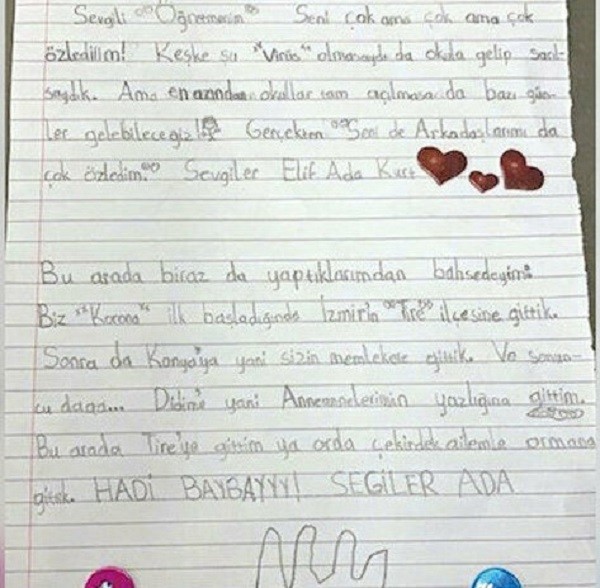 Sevgili "Öğretmenim" Seni çok ama çok ama çok
özledim! Keşke şu "Virüs" olmasaydı da okula gelip sarıl-
saydık. Ama en azından okullar tam açılmasa da bazı gün-
ler gelebileceğiz! Gerçekten Seni de Arkadaşlarımı da
çok özledim. Sevgiler Elif Ada Kurt
Bu arada biraz da yaptıklarımdan bahsedeyim:
Biz "Korona" ilk başladığında İzmir'in "Tire" ilçesine gittik.
Sonra da Konya'ya yani sizin memlekete gittik. Ve sonun-
cu daaa... Didim'e yani Annemnelerimin yazlığına gittim.
Bu arada Tire'ye gittim ya orda çekirdek ailemle ormana
gittik. HADİ BAYBAYYY! SEGİLER ADA